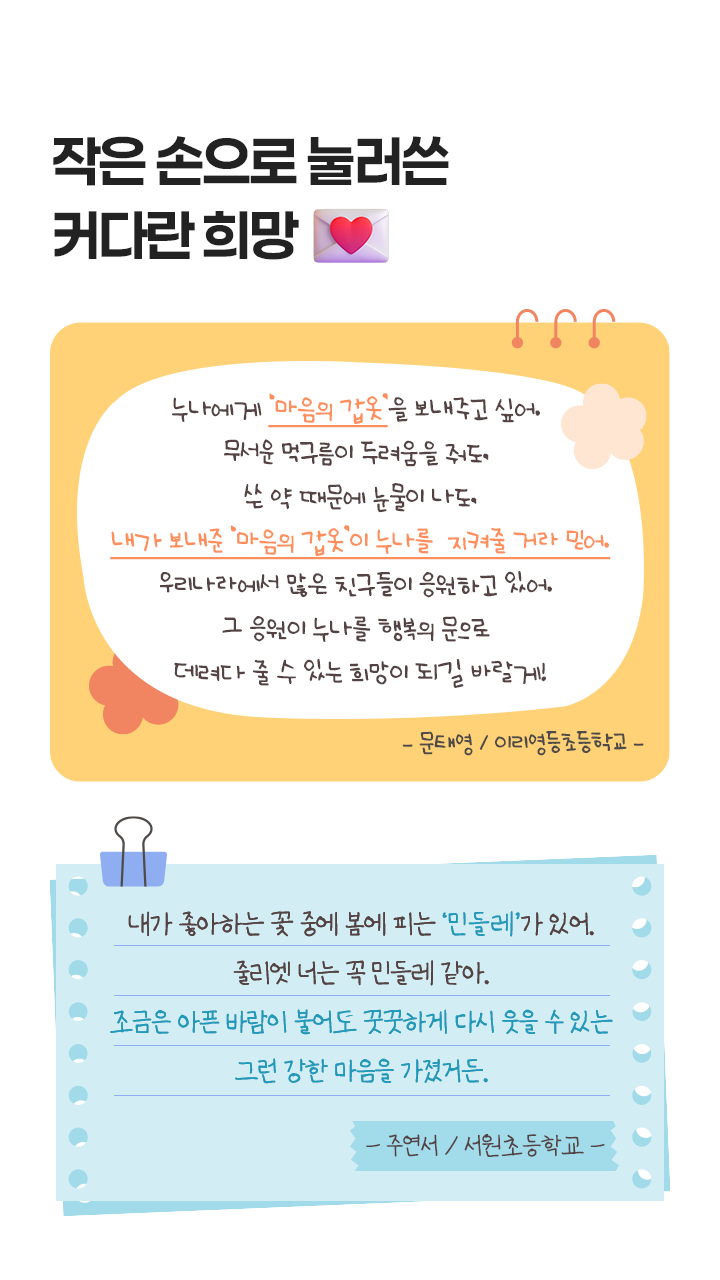 작은 손으로 눌러쓴
커다란 희망
누나에게 '마음의 갑옷'을 보내주고 싶어.
무서운 먹구름이 두려움을 줘도.
쓴 약 때문에 눈물이 나도.
내가 보내준 '마음의 갑옷'이 누나를 지켜줄 거라 믿어.
우리나라에서 많은 친구들이 응원하고 있어.
그 응원이 누나를 행복의 문으로
데려다 줄 수 있는 희망이 되길 바랄게!
- 문태영 / 이리영등초등학교 -
내가 좋아하는 꽃 중에 봄에 피는 '민들레'가 있어.
줄리엣 너는 꼭 민들레 같아.
조금은 아픈 바람이 불어도 꿋꿋하게 다시 웃을 수 있는
그런 강한 마음을 가졌거든.
- 주연서 / 서원초등학교 -